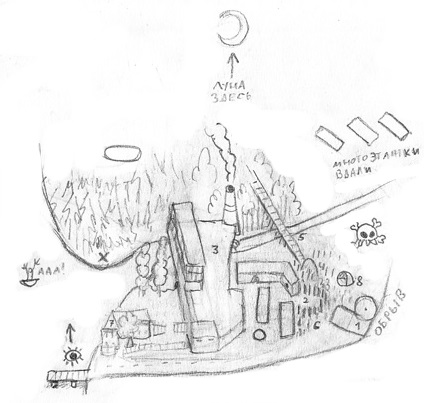 ЛУНА
ЗДЕСЬ
МНОГОЭТАЖКИ
ВДАЛИ
ААА!
X
3
5
8
2
6
1
ОБРЫВ